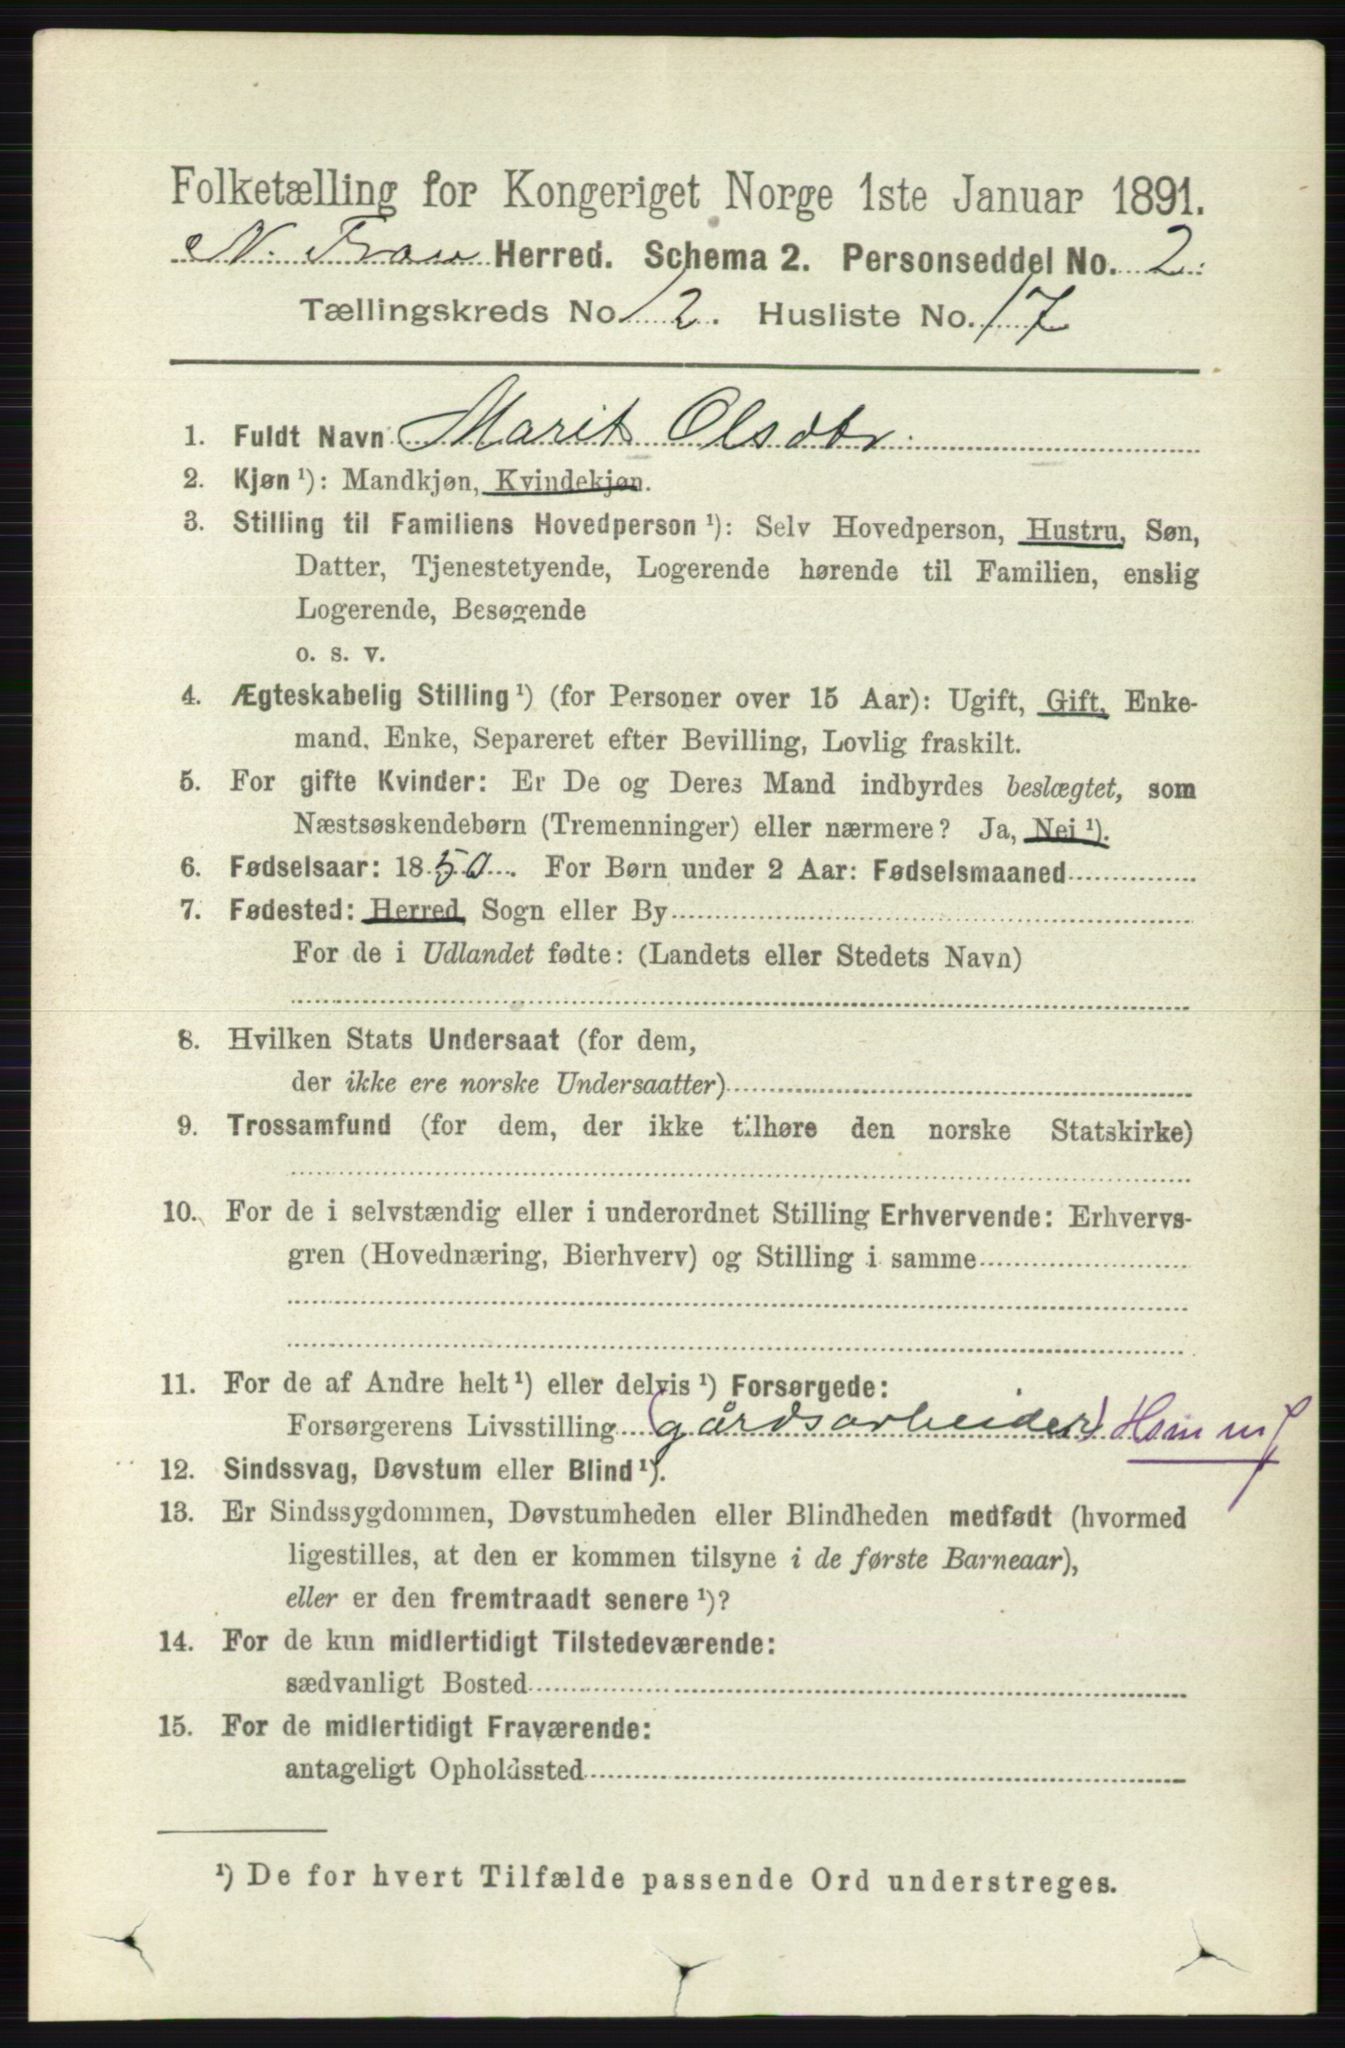 Folketælling for Kongeriget Norge 1ste Januar 1891.
N. Fron Herred. Schema 2. Personseddel No. 2
Tællingskreds No 12. Husliste No. 17
1. Fuldt Navn Marit Olsdtr.
2. Kjøn ¹): Mandkjøn, Kvindekjøn.
3. Stilling til Familiens Hovedperson ¹): Selv Hovedperson, Hustru, Søn,
Datter, Tjenestetyende, Logerende hørende til Familien, enslig
Logerende, Besøgende
o. s. v.
4. Ægteskabelig Stilling ¹) (for Personer over 15 Aar): Ugift, Gift, Enke-
mand, Enke, Separeret efter Bevilling, Lovlig fraskilt.
5. For gifte Kvinder: Er De og Deres Mand indbyrdes beslægtet, som
Næstsøskendebørn (Tremenninger) eller nærmere? Ja, Nei ¹).
6. Fødselsaar: 1850. For Børn under 2 Aar: Fødselsmaaned
7. Fødested: Herred, Sogn eller By
For de i Udlandet fødte: (Landets eller Stedets Navn)
8. Hvilken Stats Undersaat (for dem,
der ikke ere norske Undersaatter)
9. Trossamfund (for dem, der ikke tilhøre den norske Statskirke)
10. For de i selvstændig eller i underordnet Stilling Erhvervende: Erhvervs-
gren (Hovednæring, Bierhverv) og Stilling i samme
11. For de af Andre helt ¹) eller delvis ¹) Forsørgede:
Forsørgerens Livsstilling (gårdsarbeider)
12. Sindssvag, Døvstum eller Blind ¹).
13. Er Sindssygdommen, Døvstumheden eller Blindheden medfødt (hvormed
ligestilles, at den er kommen tilsyne i de første Barneaar),
eller er den fremtraadt senere ¹)?
14. For de kun midlertidigt Tilstedeværende:
sædvanligt Bosted
15. For de midlertidigt Fraværende:
antageligt Opholdssted
¹) De for hvert Tilfælde passende Ord understreges.